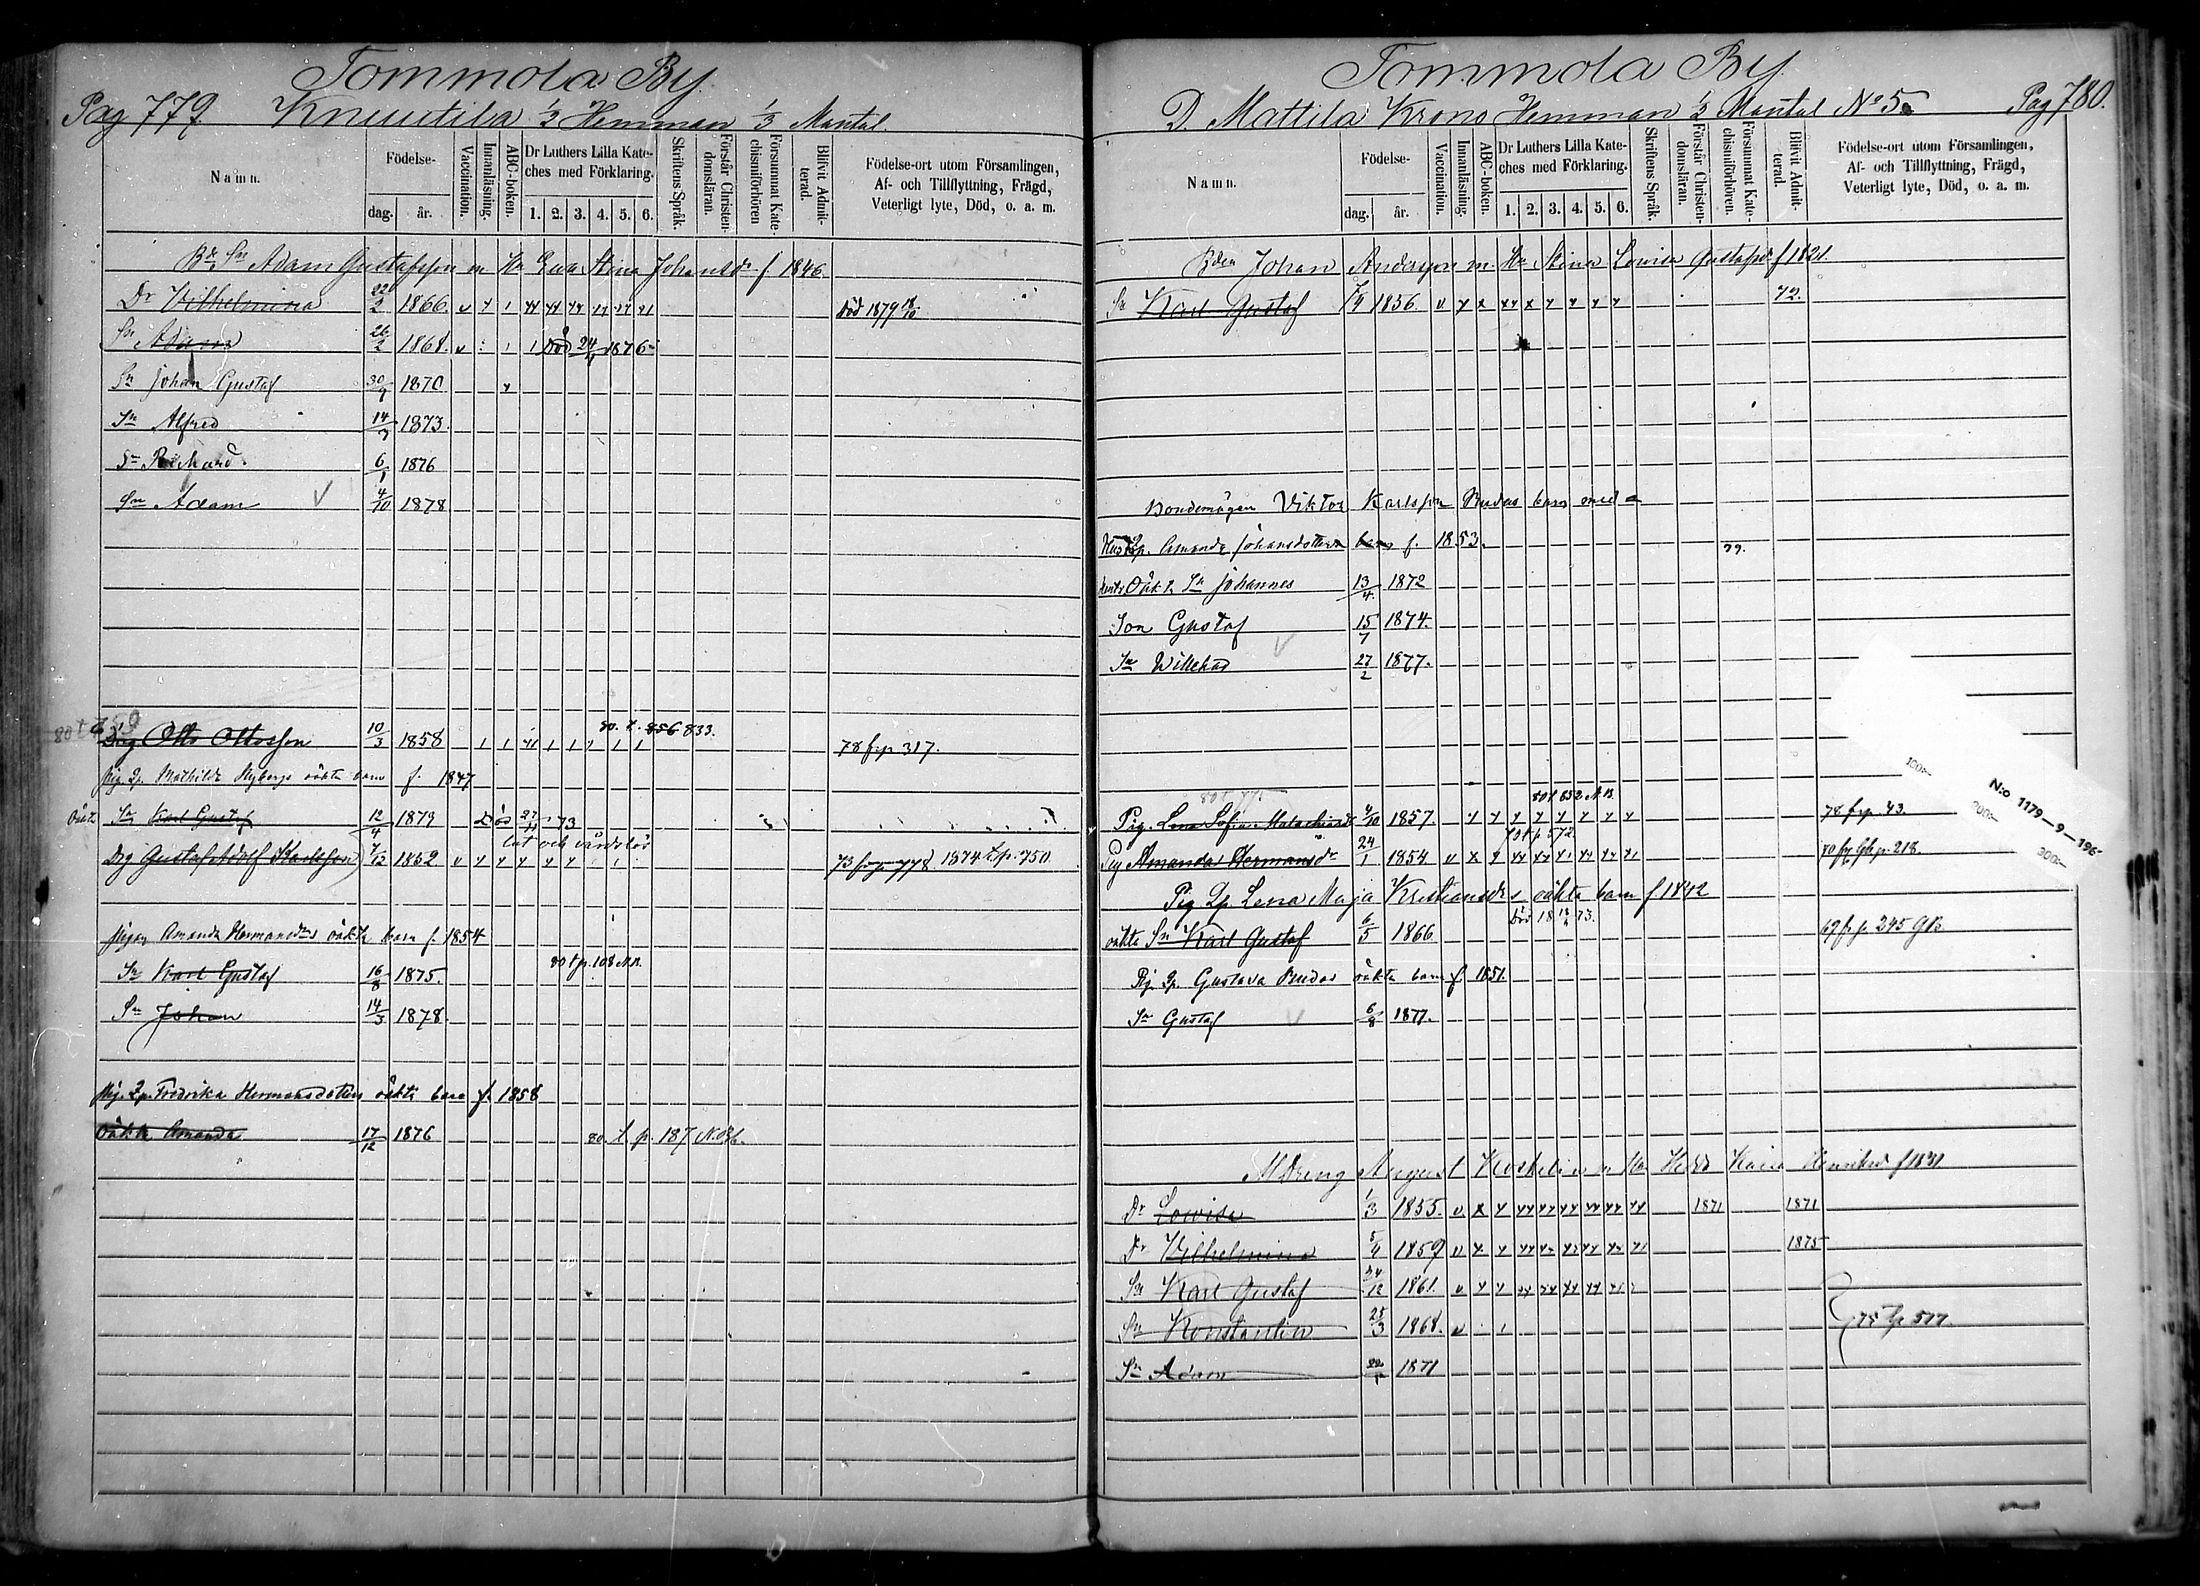 Tommola By.
Pag 779. Knuutila 1/2 Hemman 1/3 Mantal.
Namn.
Födelse-
dag. år.
Vaccination.
Innanläsning.
ABC-boken.
Dr Luthers Lilla Kate-
ches med Förklaring.
1. 2. 3. 4. 5. 6.
Skriftens Språk.
Förstår Christen-
domsläran.
Försummat Kate-
chismiförhören
Blifvit Admit-
terad.
Födelse-ort utom Församlingen,
Af- och Tillflyttning, Frägd,
Veterligt lyte, Död, o. a. m.
Adam Gustafsson m Hu Eva Stina Johansdr f. 1846
Dr Vilhelmina 22/2 1866. död 1879
Sn Adam 26/2 1868. död 24 1876
Sn Johan Gustaf 30/9 1870
Sn Alfred 14/3 1873.
Sn Richard. 6/1 1876
Sn Adam 4/10 1878
Drg Otto Ottosson 10/3 1858 80. t. 856 833. 78 frp 317.
Pig. Lp. Mathilda Nybergs oäkta barn f. 1847
Oäkta Sn Karl Gustaf 12/4 1873 Död 27/11 73
lat och vårdslös
Drg Gustaf Adolf Karlsson 7/12 1852 73 frp 778. 1874 t.p. 750.
Pigan Amanda Hermansdrs oäkta barn f. 1854
Sn Karl Gustaf 16/8 1875. 80 t p. 108 N.B.
Sn Johan 14/3 1878.
Pig. Lp. Fredrika Hermansdotters oäkta barn f. 1858
Oäkta Amanda 17/12 1876 80. t. p. 187
Tommola By.
D. Mattila Krono Hemman 1/2 Mantal No 5. Pag 780.
Namn.
Födelse-
dag. år.
Vaccination.
Innanläsning.
ABC-boken.
Dr Luthers Lilla Kate-
ches med Förklaring.
1. 2. 3. 4. 5. 6.
Skriftens Språk.
Förstår Christen-
domsläran.
Försummat Kate-
chismiförhören.
Blifvit Admit-
terad.
Födelse-ort utom Församlingen,
Af- och Tillflyttning, Frägd,
Veterligt lyte, Död, o. a. m.
Bden Johan Andersson m. Hu Stina Lovisa Gustafsdr f 1821.
Sn Karl Gustaf 1856. 72.
Bondemågen Viktor Karlsson Rudas barn med
Amanda Johansdotter barn f. 1853. 79.
Oäkta Sn Johannes 13/4 1872
Son Gustaf 15/7 1874.
Sn Willehad 27/2 1877.
80 t 775 80 t. 652 N.B.
Pig. Lena Sofia Malachiasdr 4/10 1857. 78 frp. 43.
70 t p 572
Pig Amanda Hermansdr 24/1 1854
Pig Lp. Lena Maja Kristiansdrs oäkta barn f. 1842
oäkta Sn Karl Gustaf 6/5 1866 69 fr p. 245
Pig. Lp. Gustava Rudas oäkta barn f. 1851.
Sn Gustaf 6/8 1877.
No 1179-9-196
100:-
200:-
300:-
August Henriksd f 1831
Dr Lovisa 1/3 1855. 1871 1871
Dr Vilhelmina 5/4 1859 1875
Sn Karl Gustaf 24/12 1861.
Sn Konstantin 25/3 1868. 75 t p 577
Sn Adam 1871